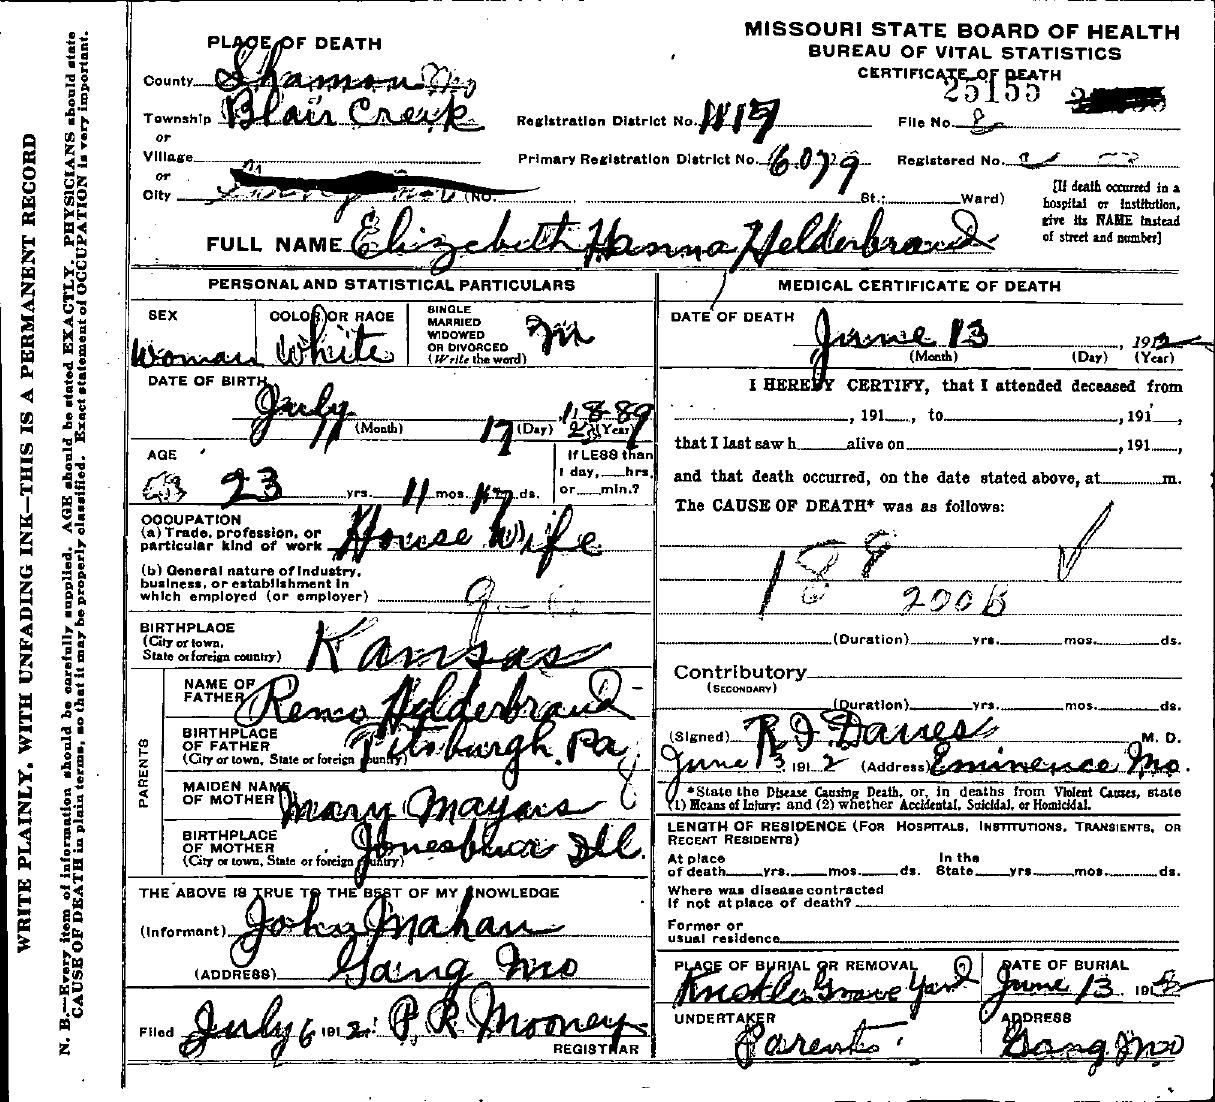 WRITE PLAINLY, WITH UNFADING INK—THIS IS A PERMANENT RECORD
N. B.—Every item of information should be carefully supplied. AGE should be stated EXACTLY. PHYSICIANS should state
CAUSE OF DEATH in plain terms, so that it may be properly classified. Exact statement of OCCUPATION is very important.
MISSOURI STATE BOARD OF HEALTH
BUREAU OF VITAL STATISTICS
CERTIFICATE OF DEATH
25155
PLACE OF DEATH
County Shannon Mo
Township Blair Creek
or
Village
or
City (No. St.; Ward)
Registration District No.
File No.
Primary Registration District No. 6079
Registered No.
[If death occurred in a
hospital or institution,
give its NAME instead
of street and number]
FULL NAME Elizebeth Hanna Helderbrand
PERSONAL AND STATISTICAL PARTICULARS
SEX
Woman
COLOR OR RACE
White
SINGLE
MARRIED
WIDOWED
OR DIVORCED
(Write the word)
M
DATE OF BIRTH
July 17 1889
(Month) (Day) (Year)
AGE
23 yrs. 11 mos. 17 ds.
If LESS than
1 day, hrs.
or min.?
OCCUPATION
(a) Trade, profession, or
particular kind of work House Wife
(b) General nature of industry,
business, or establishment in
which employed (or employer)
BIRTHPLACE
(City or town,
State or foreign country) Kansas
PARENTS
NAME OF
FATHER Remo Helderbrand
BIRTHPLACE
OF FATHER
(City or town, State or foreign country) Pittsburgh Pa
MAIDEN NAME
OF MOTHER Mary Mayars
BIRTHPLACE
OF MOTHER
(City or town, State or foreign country) Ill.
THE ABOVE IS TRUE TO THE BEST OF MY KNOWLEDGE
(Informant) John Mahan
(ADDRESS) Gang Mo
Filed July 6 1912 P. R. Mooney
REGISTRAR
MEDICAL CERTIFICATE OF DEATH
DATE OF DEATH
June 13, 1912
(Month) (Day) (Year)
I HEREBY CERTIFY, that I attended deceased from
, 191 , to , 191 ,
that I last saw h alive on , 191 ,
and that death occurred, on the date stated above, at m.
The CAUSE OF DEATH* was as follows:
189
200B
(Duration) yrs. mos. ds.
Contributory
(SECONDARY)
(Duration) yrs. mos. ds.
(Signed) R. J. Davies M. D.
June 13 1912 (Address) Eminence Mo.
*State the Disease Causing Death, or, in deaths from Violent Causes, state
(1) Means of Injury; and (2) whether Accidental, Suicidal, or Homicidal.
LENGTH OF RESIDENCE (FOR HOSPITALS, INSTITUTIONS, TRANSIENTS, OR
RECENT RESIDENTS)
At place
of death yrs. mos. ds.
In the
State yrs. mos. ds.
Where was disease contracted
If not at place of death?
Former or
usual residence
PLACE OF BURIAL OR REMOVAL
Grave Yard
DATE OF BURIAL
June 13 1912
UNDERTAKER
Parents
ADDRESS
Gang Mo